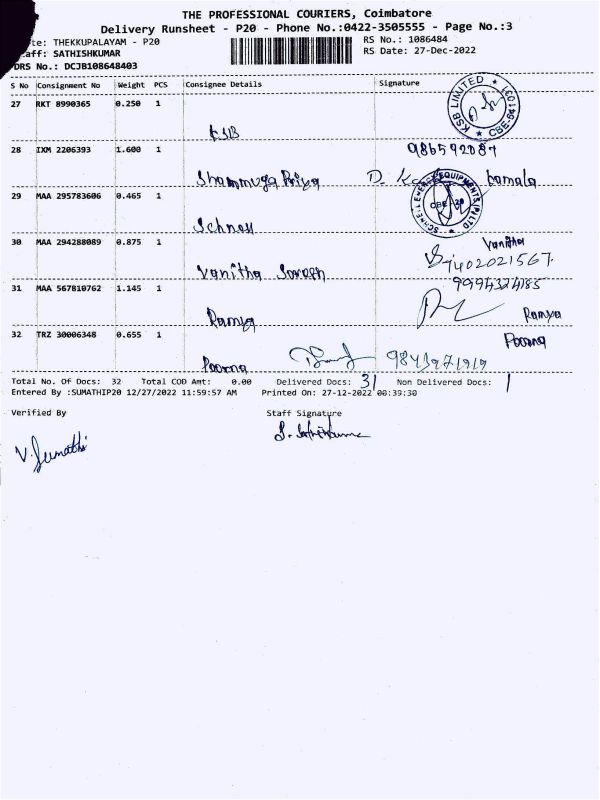 THE PROFESSIONAL COURIERS, Coimbatore
Delivery Runsheet - P20 - Phone No.:0422-3505555 - Page No.:3
THEKKUPALAYAM - P20
RS No.: 1086484
SATHISHKUMAR
RS Date: 27-Dec-2022
DRS No.: DCJB108648403
S No Consignment No Weight PCS Consignee Details Signature
27 RKT 8990365 0.250 1
KSB
KSB LIMITED
28 IXM 2206393 1.600 1
Shanmuga Priya kamala
29 MAA 295783606 0.465 1
Schnell
30 MAA 294288089 0.875 1
Vanitha
Vanitha 7402021567
31 MAA 567810762 1.145 1
9994324185
Ramya Ramya
32 TRZ 30006348 0.655 1
Poorna
Poorna 9843971919
Total No. OF Docs: 32 Total COD Amt: 0.00 Delivered Docs: 31 Non Delivered Docs: 1
Entered By :SUMATHIP20 12/27/2022 11:59:57 AM Printed On: 27-12-2022 00:39:30
Verified By Staff Signature
V. Sumathi